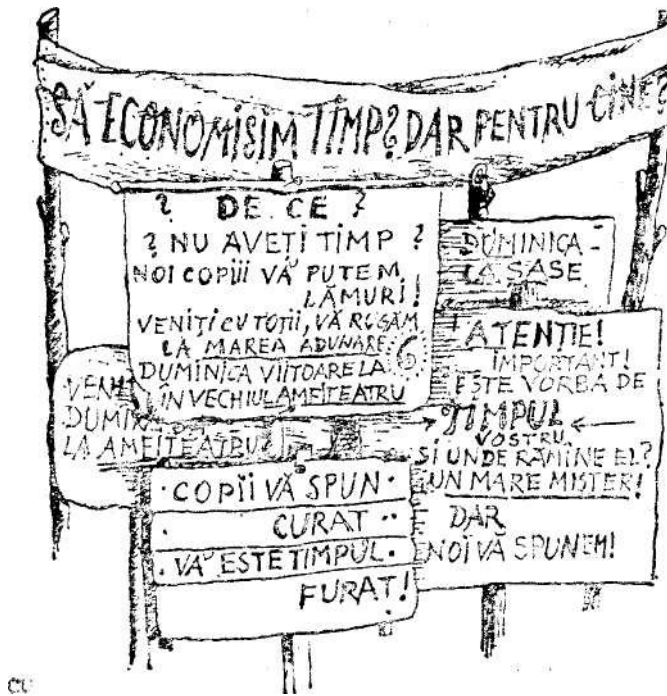 SĂ ECONOMISIM TIMP? DAR PENTRU CINE?
? DE CE ?
? NU AVEȚI TIMP ?
NOI COPIII VĂ PUTEM
LĂMURI!
VENIȚI CU TOȚII, VĂ RUGĂM
LA MAREA ADUNARE
DUMINICA VIITOARE LA 6
ÎN VECHIUL AMFITEATRU
DUMINICA -
LA ȘASE
ATENȚIE!
IMPORTANT!
ESTE VORBA DE
TIMPUL
VOSTRU.
ȘI UNDE RĂMÎNE EL?
UN MARE MISTER!
DAR
NOI VĂ SPUNEM!
LA AMFITEATRU
· COPIII VĂ SPUN ·
· CURAT ··
· VĂ ESTE TIMPUL ·
FURAT!
CU